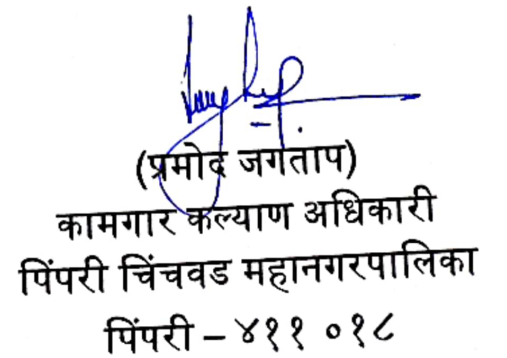 (प्रमोद जगताप)
कामगार कल्याण अधिकारी
पिंपरी चिंचवड महानगरपालिका
पिंपरी – ४११ ०१८